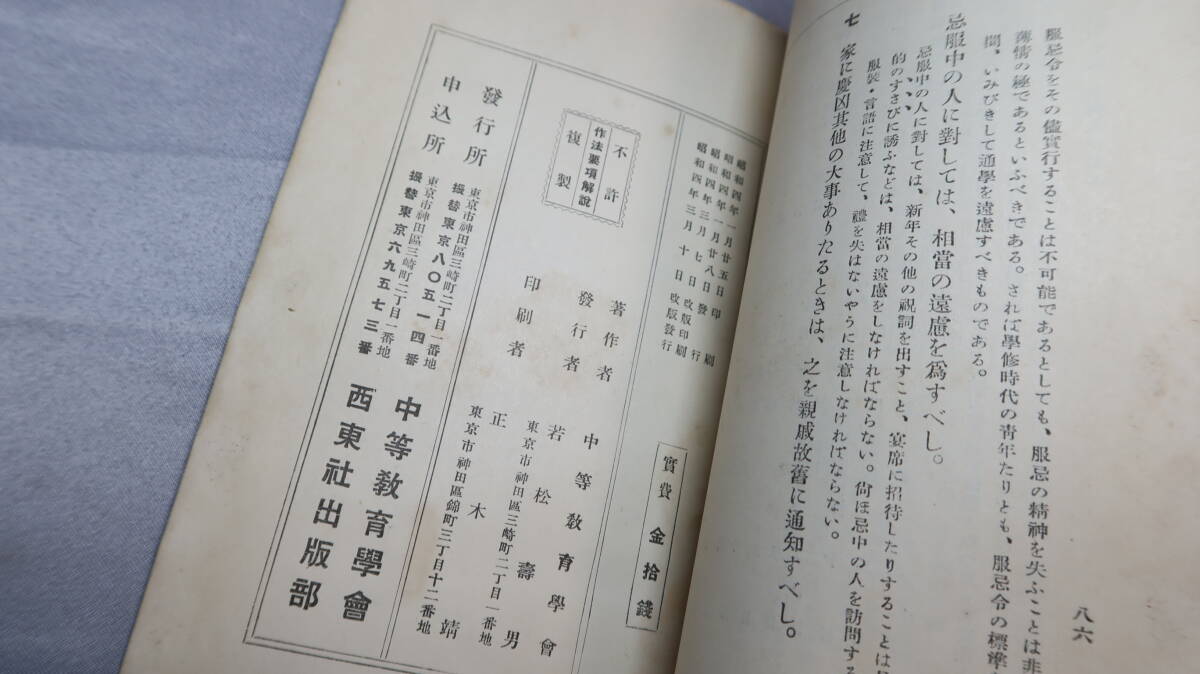 服忌令をその儘實行することは不可能であるとしても、服忌の精神を失ふことは非
薄情の極であるといふべきである。されば學修時代の靑年たりとも、服忌令の標準
間、いみびきして通學を遠慮すべきものである。
忌服中の人に對しては、相當の遠慮を爲すべし。
忌服中の人に對しては、新年その他の祝詞を出すこと、宴席に招待したりすることは
的のすさびに誘ふなどは、相當の遠慮をしなければならない。尙ほ忌中の人を訪問する
服裝・言語に注意して、禮を失はないやうに注意しなければならない。
七 家に慶凶其他の大事ありたるときは、之を親戚故舊に通知すべし。
八六
昭和四年一月廿五日印刷
昭和四年一月廿八日發行
昭和四年三月七日改版印刷
昭和四年三月十日改版發行
實費 金拾錢
不許
作法要項解說
複製
著作者 中等敎育學會
東京市神田區三崎町二丁目一番地
發行者 若松壽男
東京市神田區錦町三丁目十二番地
印刷者 正木靖
發行所 東京市神田區三崎町二丁目一番地
振替東京八〇五一四番
中等敎育學會
申込所 東京市神田區三崎町二丁目一番地
振替東京六九五七三番
西東社出版部